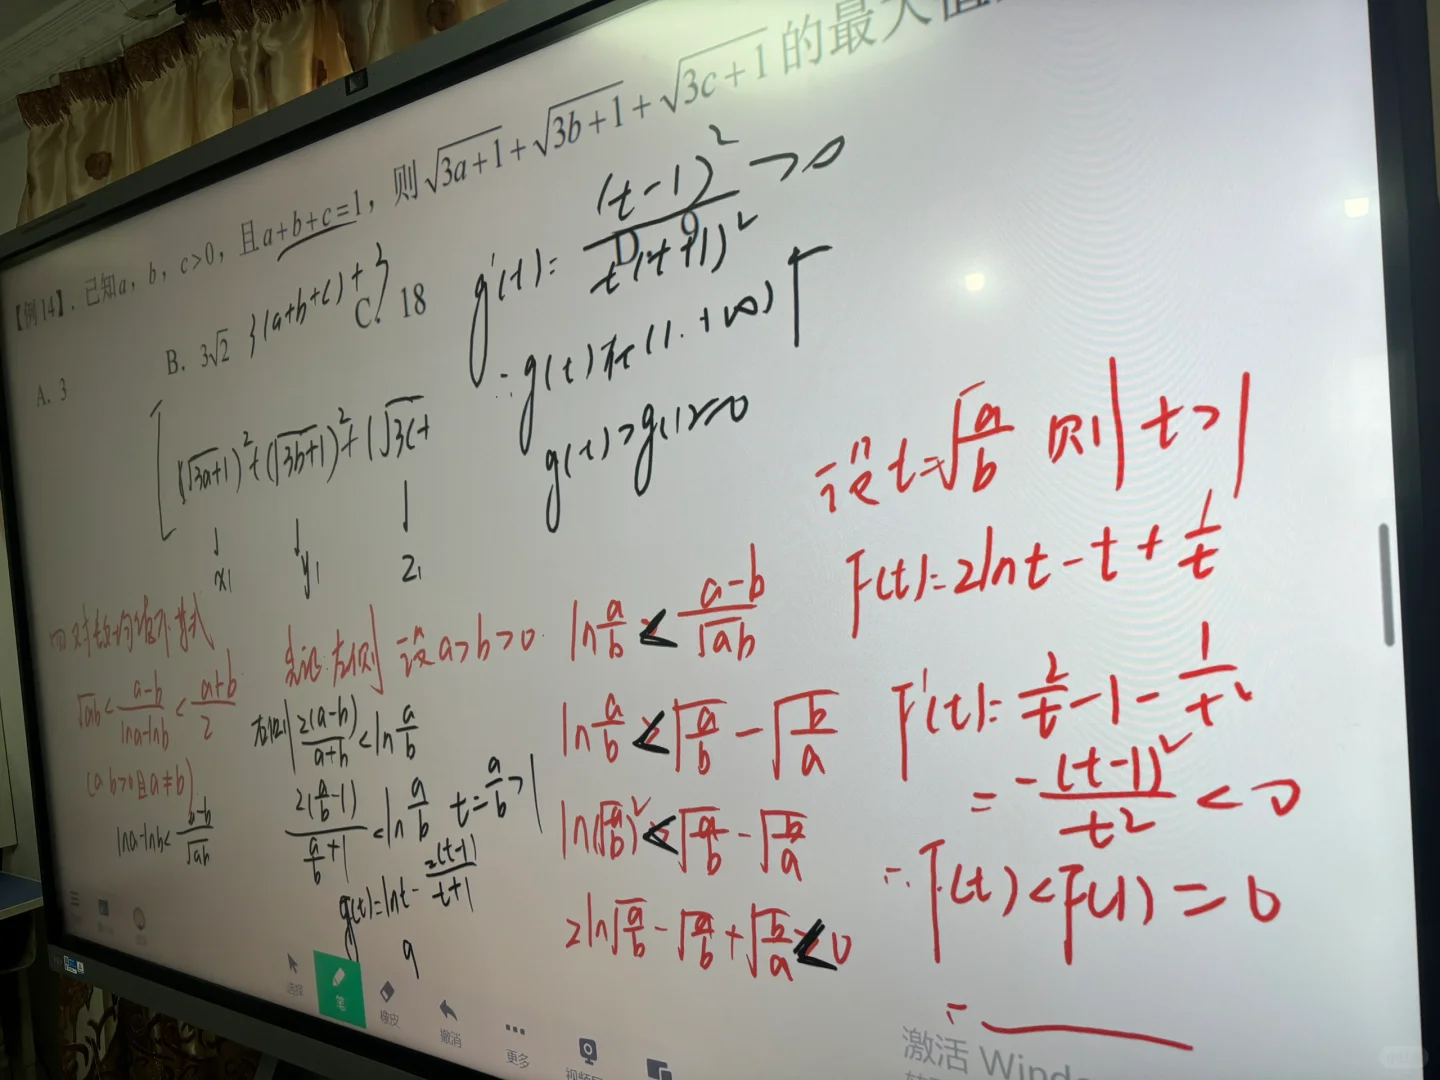 【例14】. 已知a，b，c>0，且a+b+c=1，则√(3a+1)+√(3b+1)+√(3c+1)的最大值
A. 3
B. 3√2
C. 18
D 9
3(a+b+c)+3
[(√(3a+1))²+(√(3b+1))²+(√3c+
↓ ↓ ↓
x₁ y₁ z₁
g'(t)=(t-1)²/t(t+1)²>0
∴g(t)在(1.+∞)↑
g(t)>g(1)=0
四 对数均值不等式
√ab<(a-b)/(lna-lnb)<(a+b)/2
(a b>0且a≠b)
lna-lnb<(a-b)/√ab
先证左侧 设a>b>0
右侧 2(a-b)/(a+b)<ln a/b
2(a/b-1)/(a/b+1)<ln a/b t=a/b>1
g(t)=lnt-2(t-1)/(t+1)
ln a/b<(a-b)/√ab
ln a/b<√(a/b)-√(b/a)
ln(√(a/b))²<√(a/b)-√(b/a)
2ln√(a/b)-√(a/b)+√(b/a)<0
设t=√(a/b) 则 t>1
F(t)=2lnt-t+1/t
F'(t)=2/t-1-1/t²
=-(t-1)²/t²<0
∴F(t)<F(1)=0
∴
选择
笔
橡皮
撤消
更多
激活 Wind